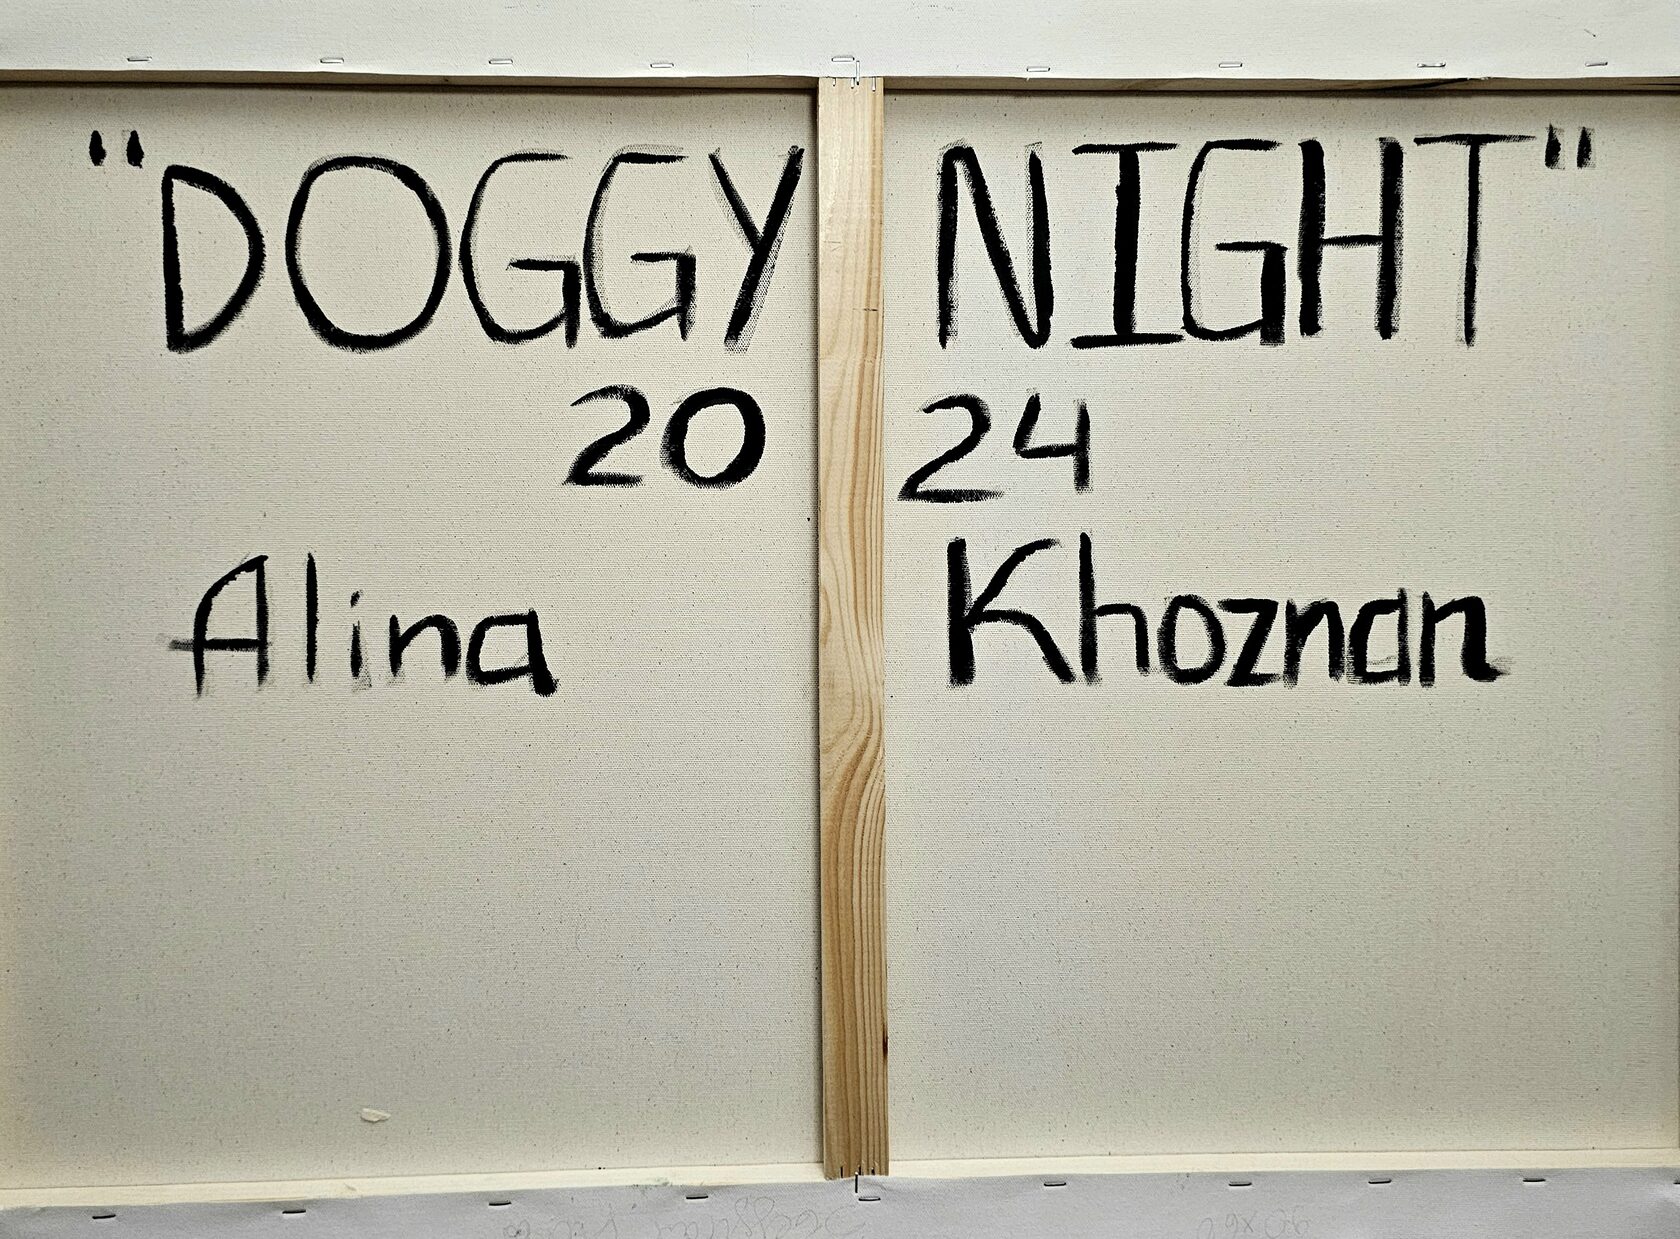 "DOGGY NIGHT"
2024
Alina Khoznan